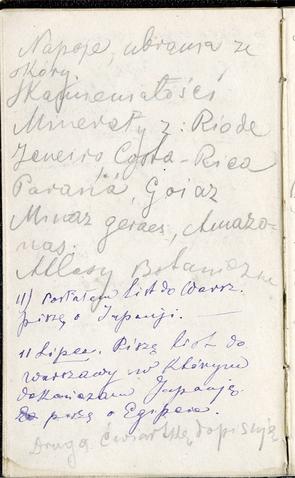 Napoje, ubrania ze
skóry
Skamieniałości
Minerały z: Rio de
Jeneiro Costa-Rica
Parańa, Goiaz
Minaz geraes, Amazo-
nas.
Atlasy Botaniczne
11) posłałam list do Warsz.
piszę o Japonji.
11 Lipca. Piszę list do
Warszawy w którym
dokańczam Japonję
piszę o Egipcie.
Drugą ćwiartkę dopisuję